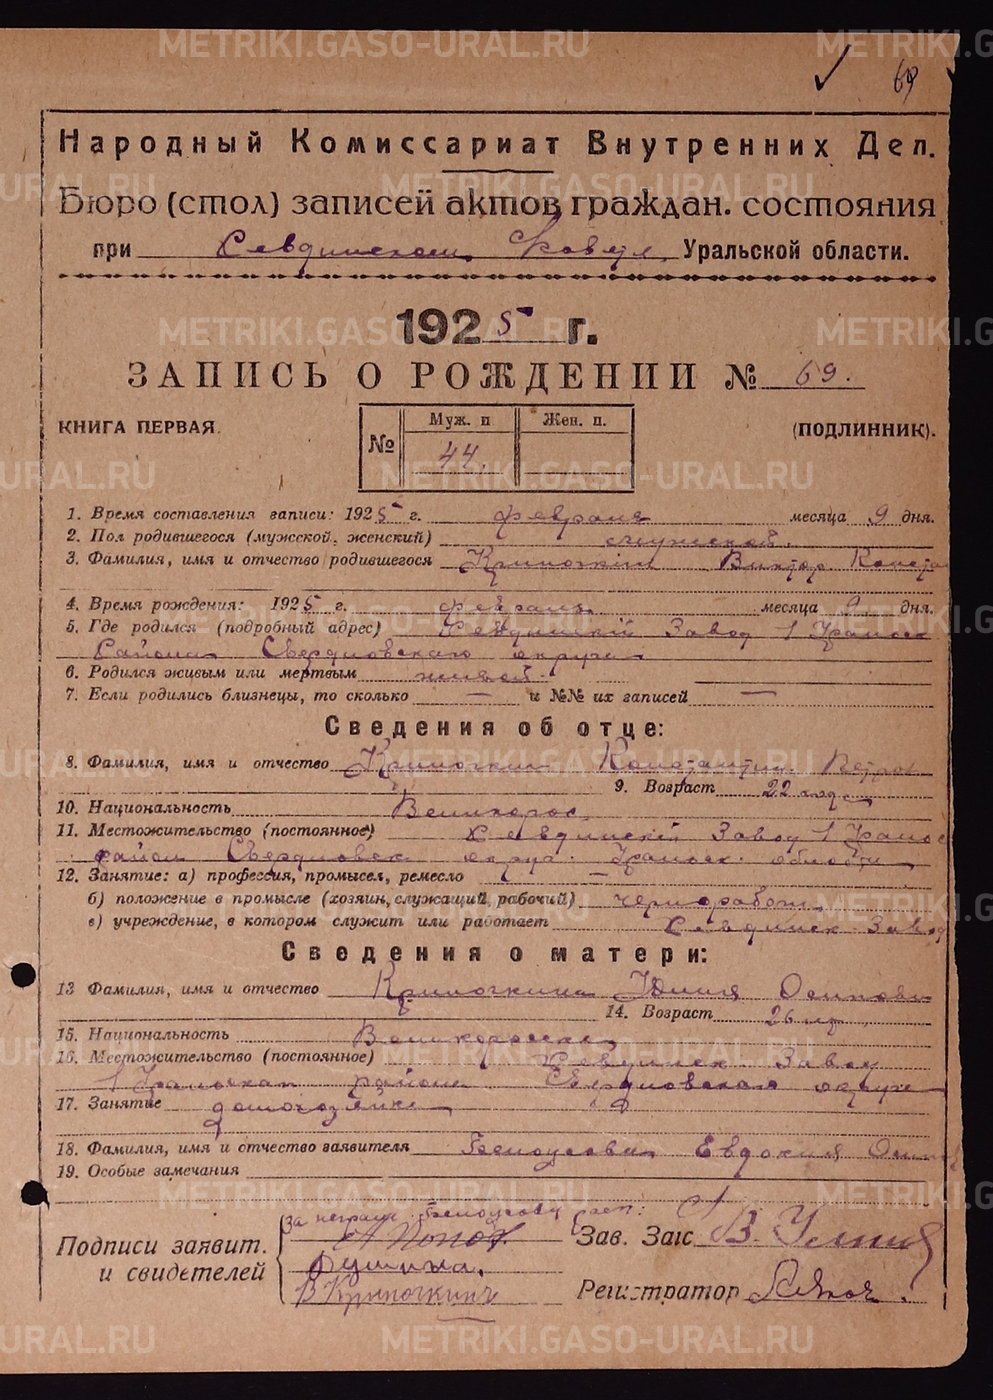 69
Народный Комиссариат Внутренних Дел.
Бюро (стол) записей актов граждан. состояния
при Ревдинском Уральской области.
1925 г.
ЗАПИСЬ О РОЖДЕНИИ № 69.
КНИГА ПЕРВАЯ. (ПОДЛИННИК).
№ Муж. п Жен. п.
44.
1. Время составления записи: 1925 г. февраля месяца 9 дня.
2. Пол родившегося (мужской, женский) мужской.
3. Фамилия, имя и отчество родившегося Крилочкин Виктор Конста
4. Время рождения: 1925 г. февраля месяца 9 дня.
5. Где родился (подробный адрес) Ревдинский Завод 1 Уральск
Района Свердловского округа
6. Родился живым или мертвым живой.
7. Если родились близнецы, то сколько — и №№ их записей —
Сведения об отце:
8. Фамилия, имя и отчество Крилочкин Константин Петров
9. Возраст 22 года
10. Национальность Великорос
11. Местожительство (постоянное) Ревдинский Завод 1 Уральс
район Свердловск округа Уральск. области
12. Занятие: а) профессия, промысел, ремесло —
б) положение в промысле (хозяин, служащий, рабочий) чернорабоч
в) учреждение, в котором служит или работает Ревдинск Завод
Сведения о матери:
13 Фамилия, имя и отчество Крилочкина Юлия Осипов
14. Возраст 26 лет
15. Национальность Великоросска
16. Местожительство (постоянное) Ревдинск Завод
1 Уральская района Свердловская округа
17. Занятие домохозяйка
18. Фамилия, имя и отчество заявителя Белоусова Евдокия Осип
19. Особые замечания
Подписи заявит. и свидетелей
за неграм. Белоусову расп:
А Попов
В Крилочкин
Зав. Загс
Регистратор
METRIKI.GASO-URAL.RU